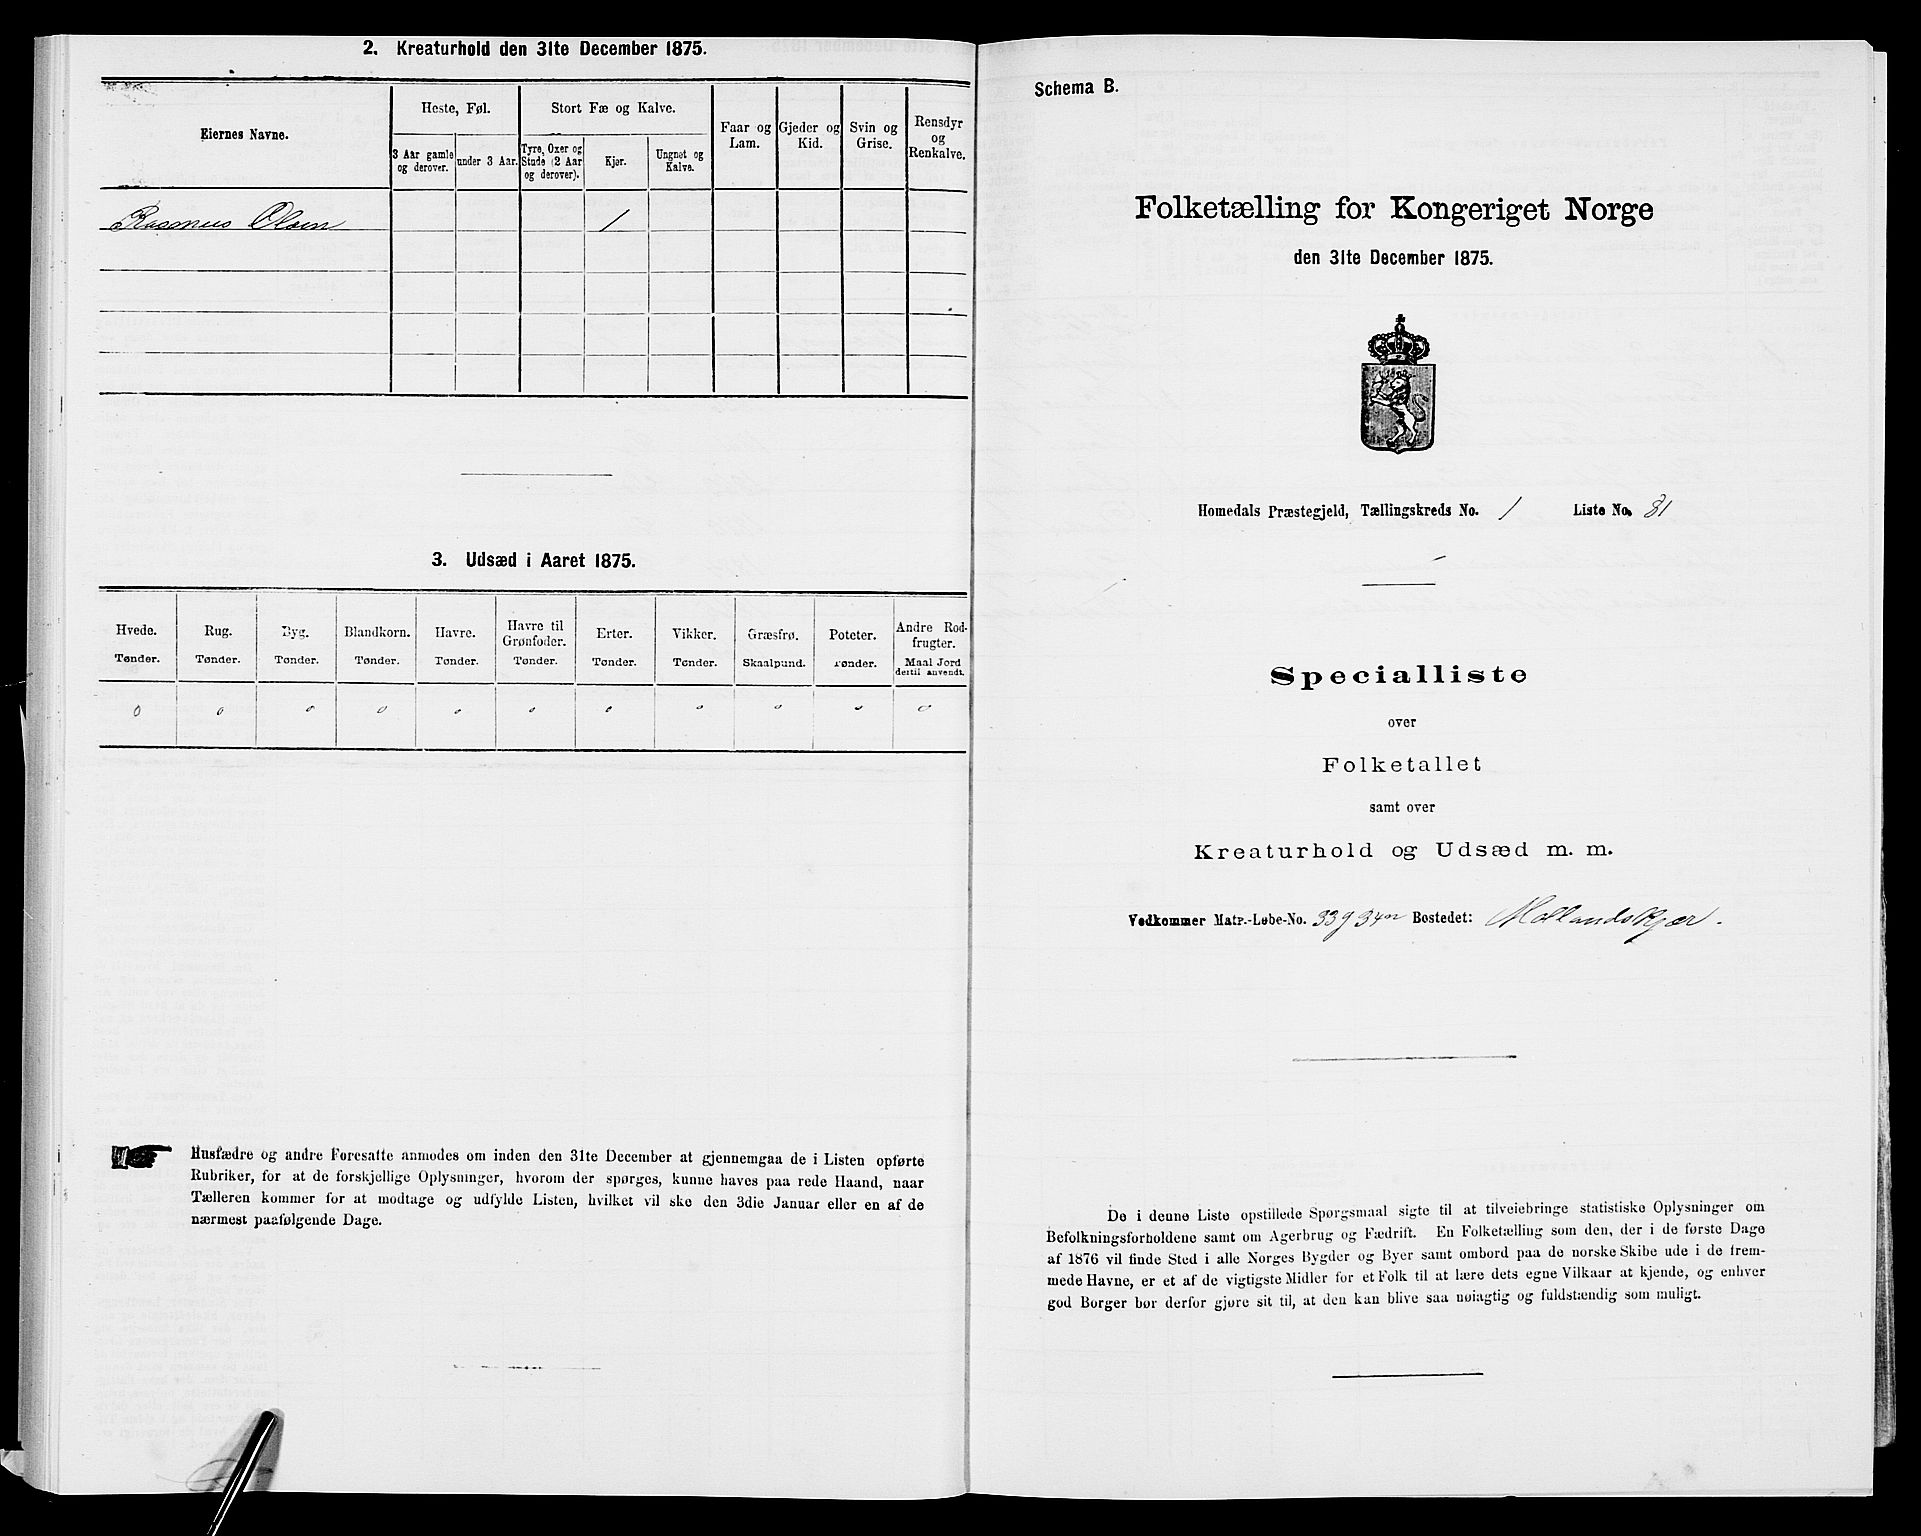 2. Kreaturhold den 31te December 1875.
Eiernes Navne.
Heste, Føl.
Stort Fæ og Kalve.
Faar og Lam.
Gjeder og Kid.
Svin og Grise.
Rensdyr og Renkalve.
3 Aar gamle og derover.
under 3 Aar.
Tyre, Oxer og Stude (2 Aar og derover).
Kjør.
Ungnøt og Kalve.
Rasmus Olsen 1
3. Udsæd i Aaret 1875.
Hvede. Rug. Byg. Blandkorn. Havre. Havre til Grønfoder. Erter. Vikker. Græsfrø. Poteter. Andre Rodfrugter.
Tønder. Tønder. Tønder. Tønder. Tønder. Tønder. Tønder. Tønder. Skaalpund. Tønder. Maal Jord dertil anvendt.
0 0 0 0 0 0 0 0 0 0 0
Husfædre og andre Foresatte anmodes om inden den 31te December at gjennemgaa de i Listen opførte
Rubriker, for at de forskjellige Oplysninger, hvorom der spørges, kunne haves paa rede Haand, naar
Tælleren kommer for at modtage og udfylde Listen, hvilket vil ske den 3die Januar eller en af de
nærmest paafølgende Dage.
Schema B.
Folketælling for Kongeriget Norge
den 31te December 1875.
Homedals Præstegjeld, Tællingskreds No. 1 Liste No. 81
Specialliste
over
Folketallet
samt over
Kreaturhold og Udsæd m. m.
Vedkommer Matr.-Løbe-No. 33g 34n Bostedet: Mollandskjær.
De i denne Liste opstillede Spørgsmaal sigte til at tilveiebringe statistiske Oplysninger om
Befolkningsforholdene samt om Agerbrug og Fædrift. En Folketælling som den, der i de første Dage
af 1876 vil finde Sted i alle Norges Bygder og Byer samt ombord paa de norske Skibe ude i de frem-
mede Havne, er et af de vigtigste Midler for et Folk til at lære dets egne Vilkaar at kjende, og enhver
god Borger bør derfor gjøre sit til, at den kan blive saa nøiagtig og fuldstændig som muligt.